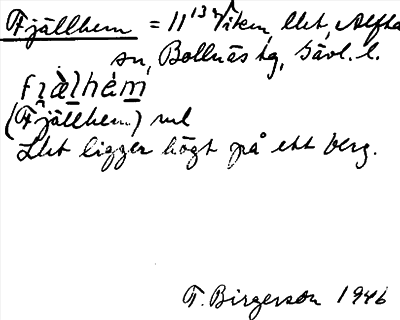 Fjällhem = 11¹³ Viken, lht, Alfta
sn, Bollnäs tg, Gävl. l.
fjä̀lhém
(Fjällhem) rul
Lht ligger högt på ett berg.
T. Birgerson 1946